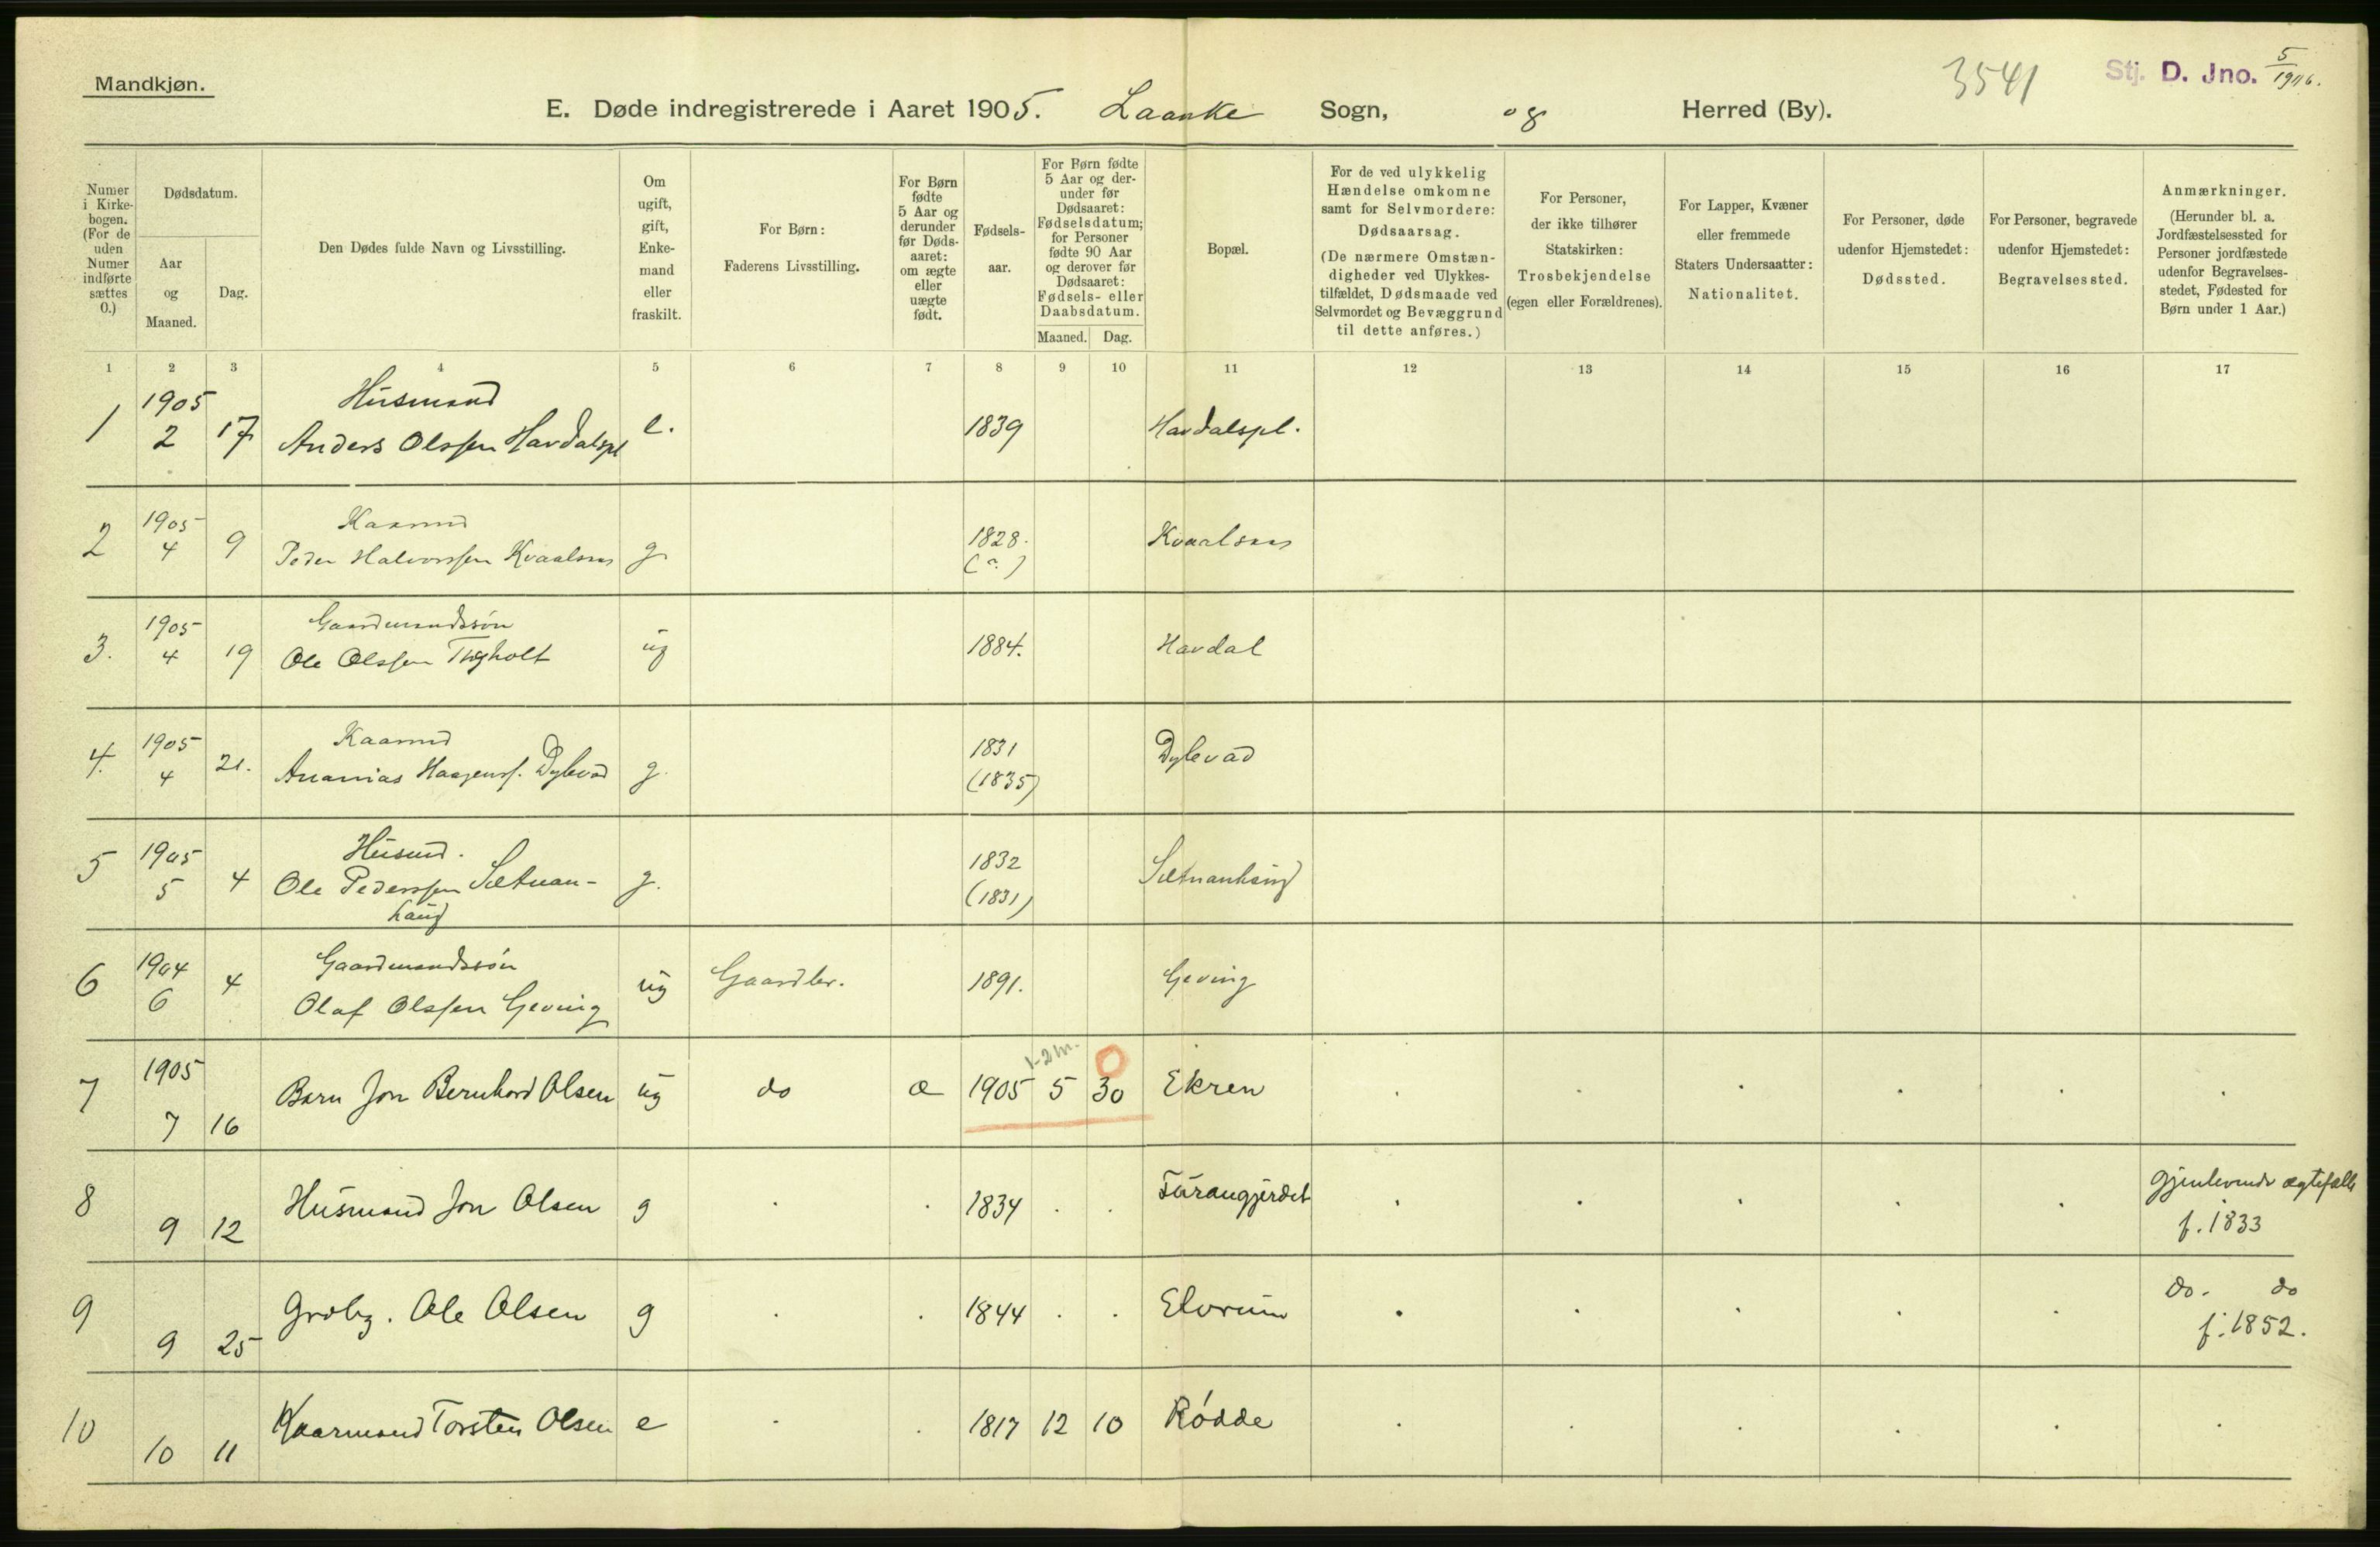 Mandkjøn.
3541
Stj. D. Jno. 5/1906.
E. Døde indregistrerede i Aaret 1905. Laanke Sogn, og Herred (By).
Numer i Kirke- bogen. (For de uden Numer indførte sættes 0.)
Dødsdatum.
Aar og Maaned.
Dag.
Den Dødes fulde Navn og Livsstilling.
Om ugift, gift, Enke- mand eller fraskilt.
For Børn: Faderens Livsstilling.
For Børn fødte 5 Aar og derunder før Døds- aaret: om ægte eller uægte født.
Fødsels- aar.
For Børn fødte 5 Aar og der- under før Dødsaaret: Fødselsdatum; for Personer fødte 90 Aar og derover før Dødsaaret: Fødsels- eller Daabsdatum.
Maaned. Dag.
Bopæl.
For de ved ulykkelig Hændelse omkomne samt for Selvmordere: Dødsaarsag. (De nærmere Omstæn- digheder ved Ulykkes- tilfældet, Dødsmaade ved Selvmordet og Bevæggrund til dette anføres.)
For Personer, der ikke tilhører Statskirken: Trosbekjendelse (egen eller Forældrenes).
For Lapper, Kvæner eller fremmede Staters Undersaatter: Nationalitet.
For Personer, døde udenfor Hjemstedet: Dødssted.
For Personer, begravede udenfor Hjemstedet: Begravelsessted.
Anmærkninger. (Herunder bl. a. Jordfæstelsessted for Personer jordfæstede udenfor Begravelses- stedet, Fødested for Børn under 1 Aar.)
1 2 3 4 5 6 7 8 9 10 11 12 13 14 15 16 17
1905 Husmand
1 2 17 Anders Olssen Havdalspl e. 1839 Havdalspl.
1905 Kaarmd
2 4 9 Peder Halvorssen Kvaalsas g. 1828. Kvaalsas
(?)
1905 Gaardmandssøn
3. 4 19 Ole Olssen ug 1884. Havdal
1905 Kaarmd 1831
4. 4 21. Ananias Haagenss. Dylevad g. (1835) Dylevad
1905 Husmd. 1832
5 5 4 Ole Pederssen Sætnan- g. (1831) Sætnanhaug
haug
1904 Gaardmandssøn
6 6 4 Olaf Olssen Geving ug Gaardbr. 1891. Geving
1905 1-2 m. 0
7 7 16 Barn Jon Bernhard Olsen ug do æ 1905 5 30 Ekren
8 9 12 Husmand Jon Olsen g 1834 gjenlevende ægtefælle
f. 1833
9 9 25 Grdbg. Ole Olsen g 1844 Elvrum do. do
f. 1852.
10 10 11 Kaarmand Torsten Olsen e 1817 12 10 Rødde